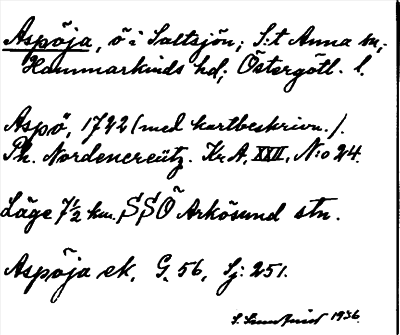 Aspöja, ö i Saltsjön; S:t Anna sn;
Hammarkinds hd; Östergötl. l.
Aspö, 1742 (med kartbeskrivn.).
Ph. Nordencreütz. Kr A, XXII, N:o 24.
Läge 7 1/2 km. SSÖ Arkösund stn.
Aspöja ek. G. 56, Sj: 251.
S. 1936.